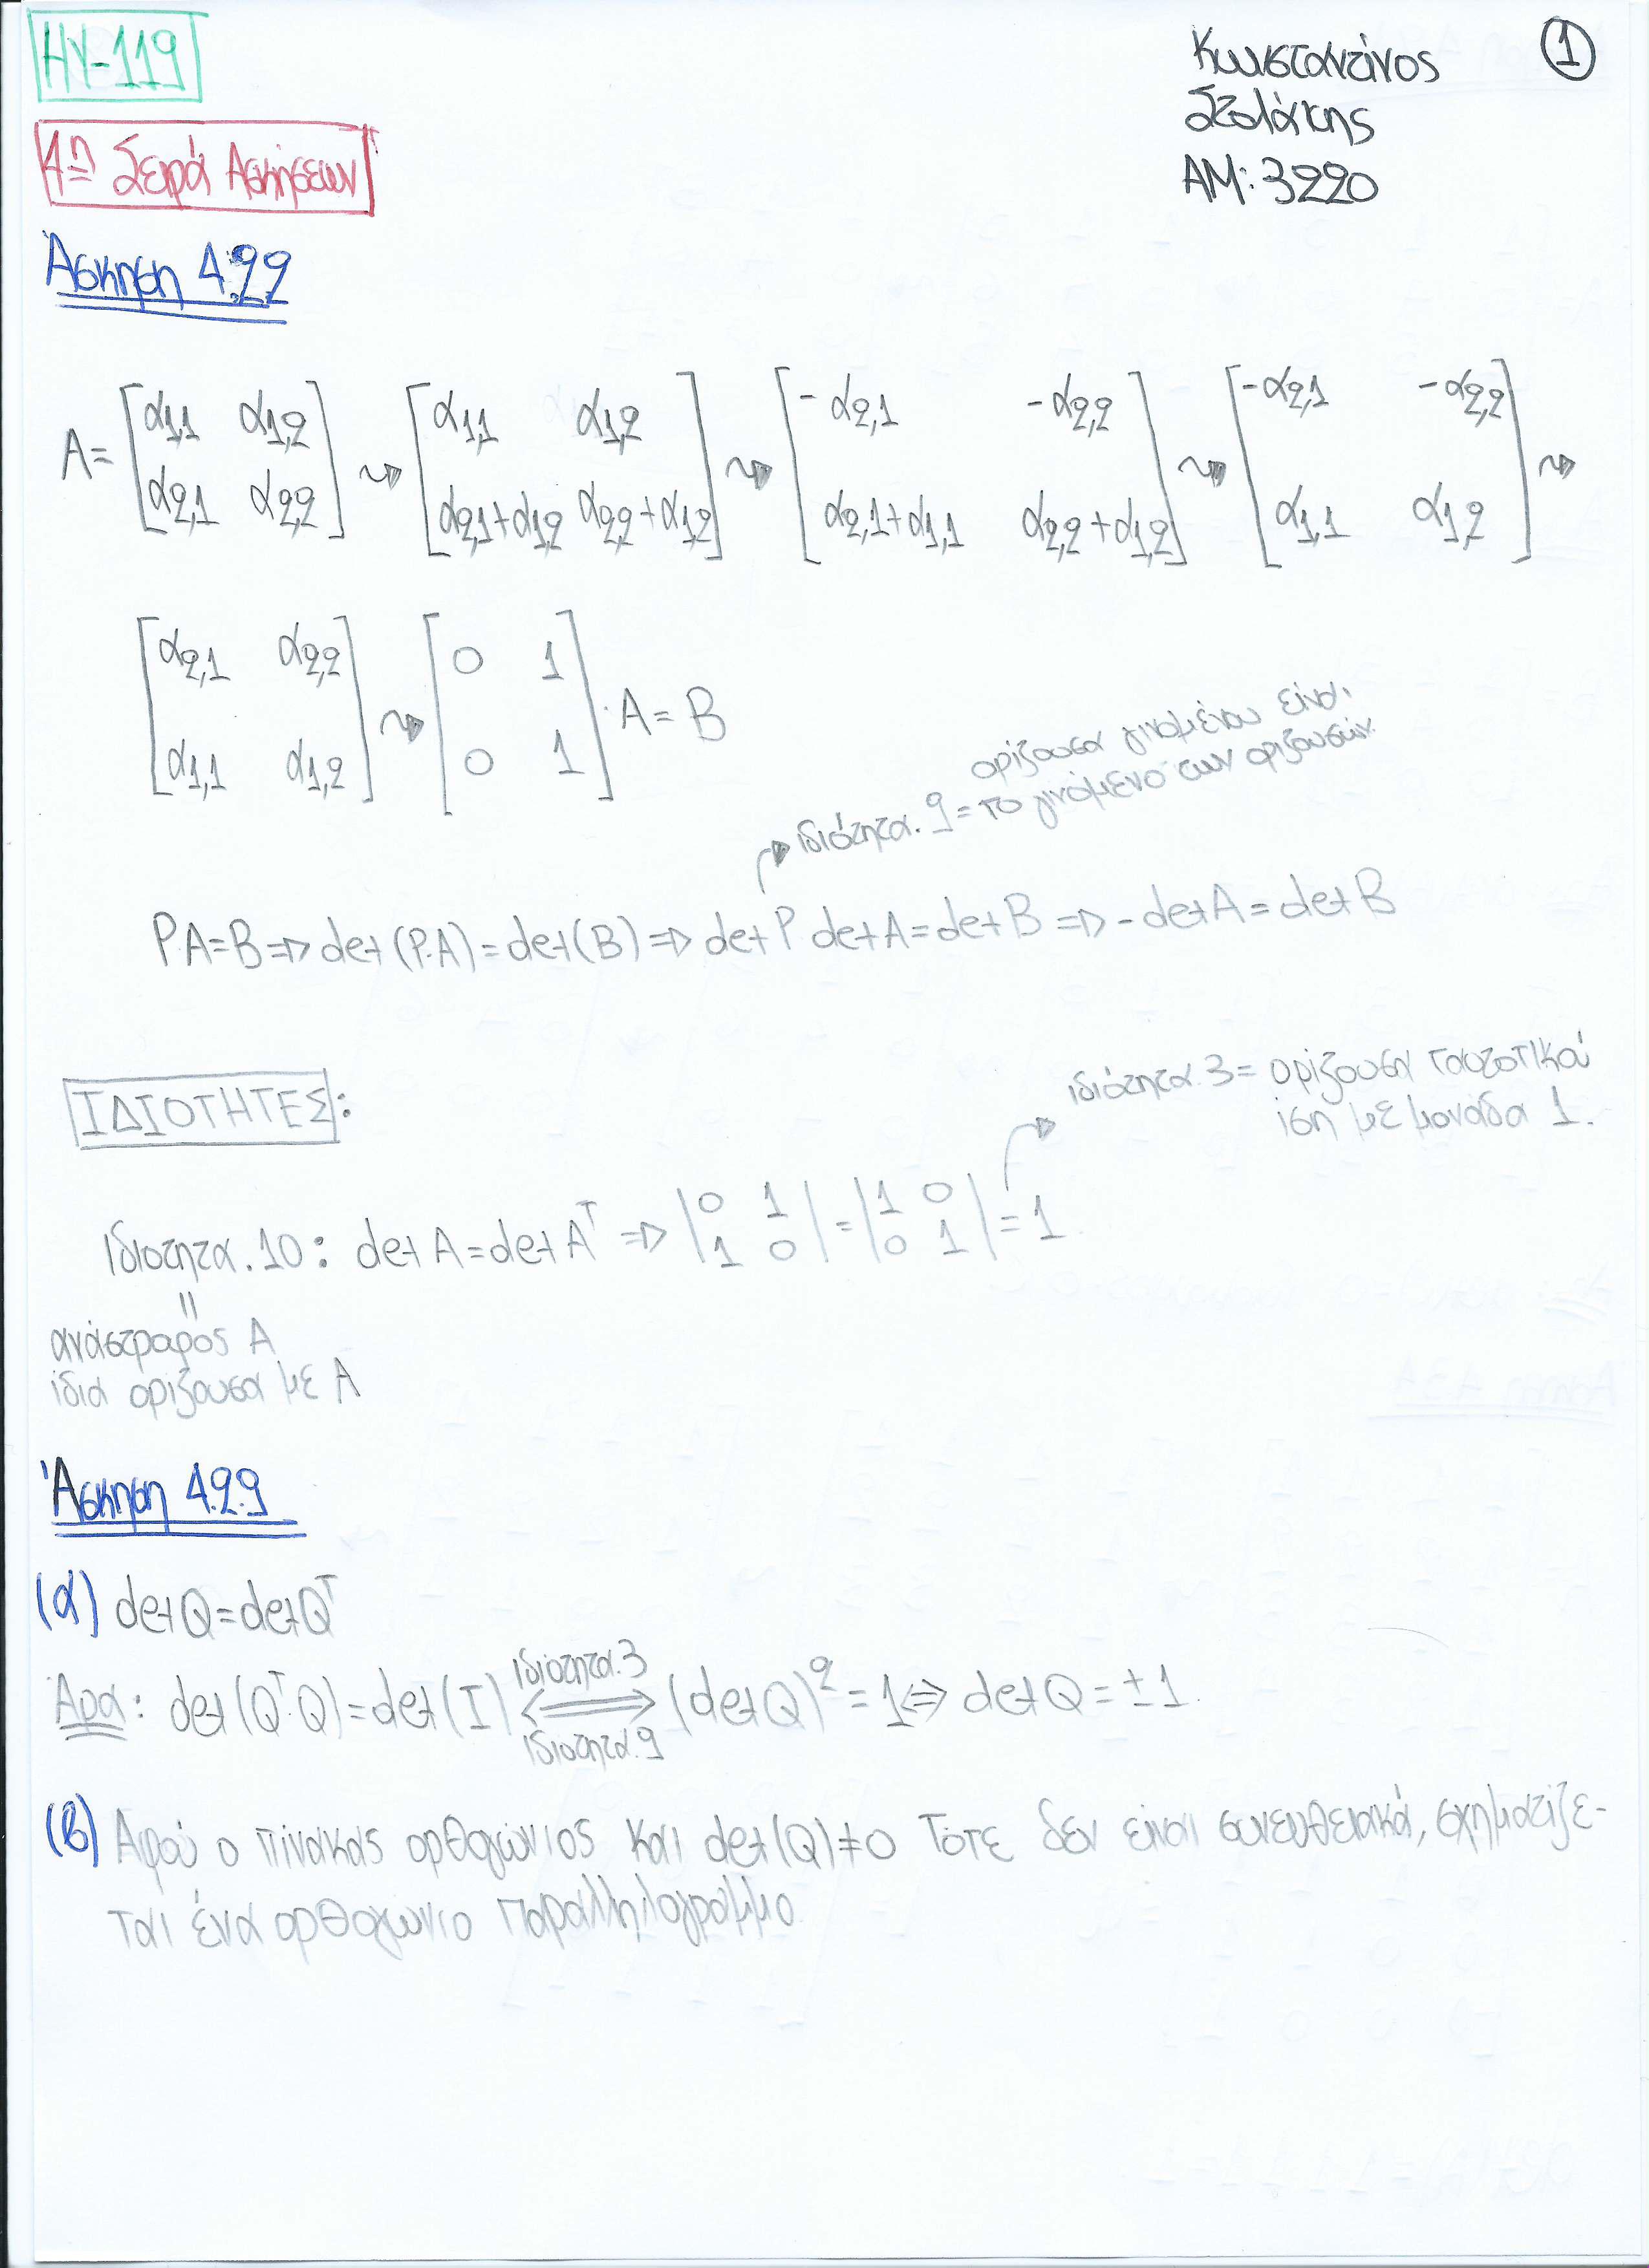 ΗΥ-119
Κωνσταντίνος
①
Στολάκης
ΑΜ: 3220
4η Σειρά Ασκήσεων
Άσκηση 4.2.2
A = [α1,1 α1,2; α2,1 α2,2] ⇝ [α1,1 α1,2; α2,1+α1,2 α2,2+α1,2] ⇝ [-α2,1 -α2,2; α2,1+α1,1 α2,2+α1,2] ⇝ [-α2,1 -α2,2; α1,1 α1,2] ⇝
[α2,1 α2,2; α1,1 α1,2] ⇝ [0 1; 0 1] · A = B
ορίζουσα γινομένου είναι
ιδιότητα. 9 = το γινόμενο των οριζουσών.
P·A=B => det(P·A) = det(B) => det P det A = det B => - det A = det B
ΙΔΙΟΤΗΤΕΣ:
ιδιότητα. 3 = ορίζουσα ταυτοτικού
ίση με μονάδα 1.
Ιδιοτητα. 10: det A = det Aᵀ => |0 1; 1 0| = |1 0; 0 1| = 1
||
ανάστραφος Α
ίδια ορίζουσα με Α
Άσκηση 4.2.9
(α) det Q = det Qᵀ
Άρα: det(Qᵀ·Q) = det(I) ⟺ (det Q)² = 1 ⟺ det Q = ±1
Ιδιοτητα. 3
ιδιοτητα. 9
(β) Αφού ο πίνακας ορθογώνιος και det(Q)≠0 Τότε δεν είναι συνευθειακά, σχηματίζε-
ται ένα ορθογώνιο παραλληλόγραμμο